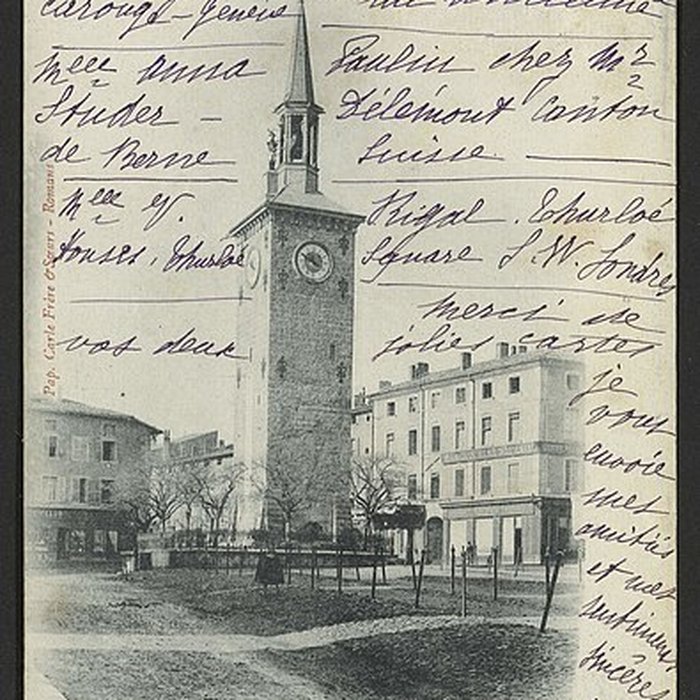 Carouge - Genève
Melle Anna Paulin chez Mr
Studer - Délémont Canton
de Berne Suisse.
Melle V. Rigal. Thurloé
Houses, Thurloé Square S.W. Londres
vos deux jolies cartes
Merci de
je
vous
envoie
mes
amitiés
et mes
sentiments
sincères
Pap. Carle Frère & Sœurs - Romans